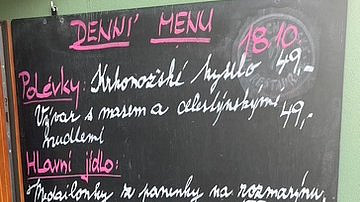 DENNÍ MENU
18.10.
Polévky: Krkonošské kyselo 49,-
Vývar s masem a celestýnskými 49,-
nudlemi
Hlavní jídlo:
Medailonky z panenky na rozmarýnu,